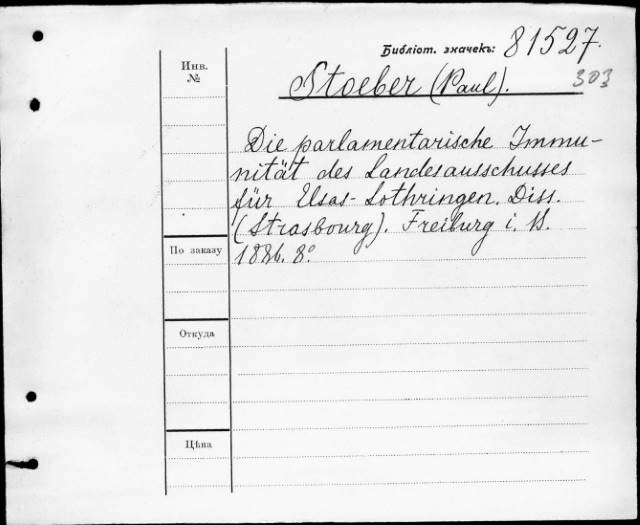 Библіот. значекъ: 81527.
303
Инв.
№
Stoeber (Paul).
Die parlamentarische Immu-
nität des Landesausschusses
für Elsas-Lothringen. Diss.
(Strasbourg). Freiburg i. B.
1886. 8º
По заказу
Откуда
Цѣна